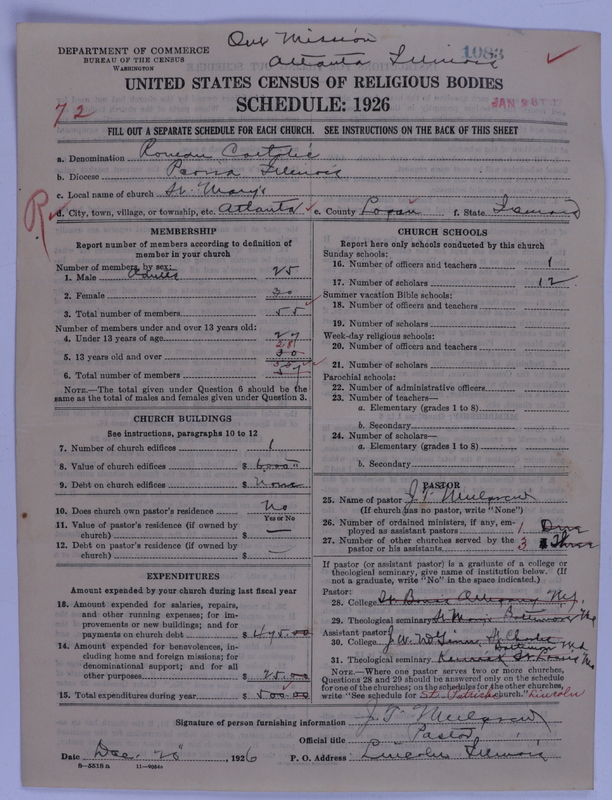 Out Mission
Atlanta Illinois
1083
DEPARTMENT OF COMMERCE
BUREAU OF THE CENSUS
WASHINGTON
UNITED STATES CENSUS OF RELIGIOUS BODIES
SCHEDULE: 1926
72
JAN 28
FILL OUT A SEPARATE SCHEDULE FOR EACH CHURCH. SEE INSTRUCTIONS ON THE BACK OF THIS SHEET
a. Denomination Roman Catholic
b. Diocese Peoria Illinois
c. Local name of church St. Mary's
R
d. City, town, village, or township, etc. Atlanta e. County Logan f. State Illinois
MEMBERSHIP
Report number of members according to definition of
member in your church
Number of members, by sex:
1. Male Adults 25
2. Female 30
3. Total number of members 55
Number of members under and over 13 years old:
4. Under 13 years of age 27
28
5. 13 years old and over 30
6. Total number of members 57
NOTE.—The total given under Question 6 should be
same as the total of males and females given under Question 3.
CHURCH BUILDINGS
See instructions, paragraphs 10 to 12
7. Number of church edifices 1
8. Value of church edifices $ 6,000
9. Debt on church edifices $ None
10. Does church own pastor's residence No
Yes or No
11. Value of pastor's residence (if owned by
church) $ —
12. Debt on pastor's residence (if owned by
church) $ —
EXPENDITURES
Amount expended by your church during last fiscal year
13. Amount expended for salaries, repairs,
and other running expenses; for im-
provements or new buildings; and for
payments on church debt $ 475.00
14. Amount expended for benevolences, in-
cluding home and foreign missions; for
denominational support; and for all
other purposes $ 25.00
15. Total expenditures during year $ 500.00
CHURCH SCHOOLS
Report here only schools conducted by this church
Sunday schools:
16. Number of officers and teachers 1
17. Number of scholars 12
Summer vacation Bible schools:
18. Number of officers and teachers
19. Number of scholars
Week-day religious schools:
20. Number of officers and teachers
21. Number of scholars
Parochial schools:
22. Number of administrative officers
23. Number of teachers—
a. Elementary (grades 1 to 8)
b. Secondary
24. Number of scholars—
a. Elementary (grades 1 to 8)
b. Secondary
PASTOR
25. Name of pastor J. T.
(If church has no pastor, write "None")
26. Number of ordained ministers, if any, em-
ployed as assistant pastors 1 One
27. Number of other churches served by the
pastor or his assistants 3 Three
If pastor (or assistant pastor) is a graduate of a college or
theological seminary, give name of institution below. (If
not a graduate, write "No" in the space indicated.)
Pastor:
28. College St. Bona Allegany N.Y.
29. Theological seminary St Mary Baltimore Md
Assistant pastor:
30. College St. Charles
Md
31. Theological seminary Kenrick St. Louis Mo
NOTE.—Where one pastor serves two or more churches,
Questions 28 and 29 should be answered only on the schedule
for one of the churches; on the schedules for the other churches,
write "See schedule for St. Patricks church." Lincoln
Signature of person furnishing information J. T.
Official title Pastor
Date Dec. 28, 1926 P. O. Address Lincoln Illinois
8—5518 a